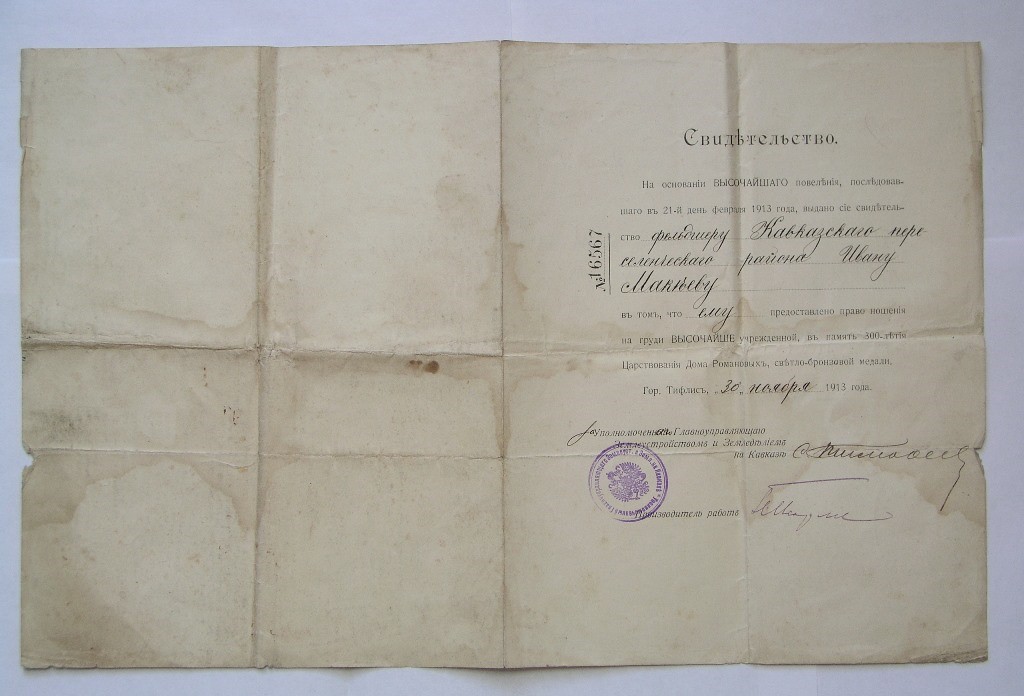 Свидѣтельство.
№ 16567
На основаніи ВЫСОЧАЙШАГО повелѣнія, послѣдовав-
шаго въ 21-й день февраля 1913 года, выдано сіе свидѣтель-
ство фельдшеру Кавказскаго пере
селенческаго района Ивану
Макѣеву
въ томъ, что ему предоставлено право ношенія
на груди ВЫСОЧАЙШЕ учрежденной, въ память 300-лѣтія
Царствованія Дома Романовыхъ, свѣтло-бронзовой медали.
Гор. Тифлисъ, „30„ ноября 1913 года.
За Уполномоченнаго Главноуправляющаго
Землеустройствомъ и Земледѣліемъ
на Кавказѣ
Производитель работъ